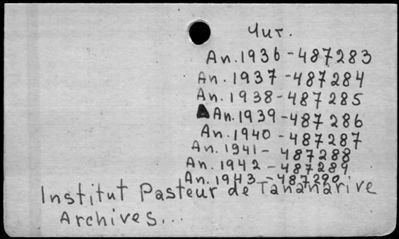 Чит.
An. 1936 - 487283
An. 1937 - 487284
An. 1938 - 487285
An. 1939 - 487286
An. 1940 - 487287
An. 1941 - 487288
An. 1942 - 487289
An. 1943 - 487290
Institut Pasteur de Tananarive
Archives...